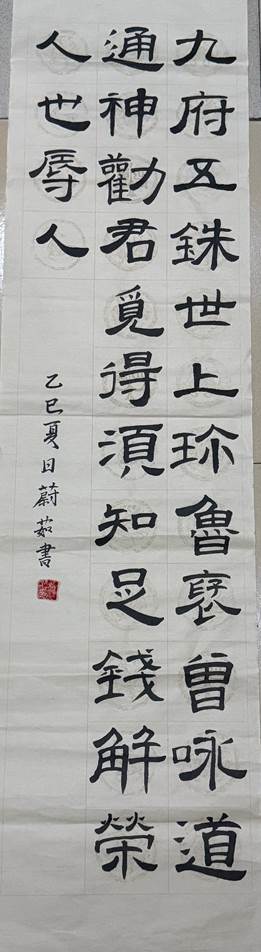 九府五銖世上珎魯褒曾咏道
通神勸君覓得須知足錢解榮
人也辱人
乙巳夏日蔚茹書